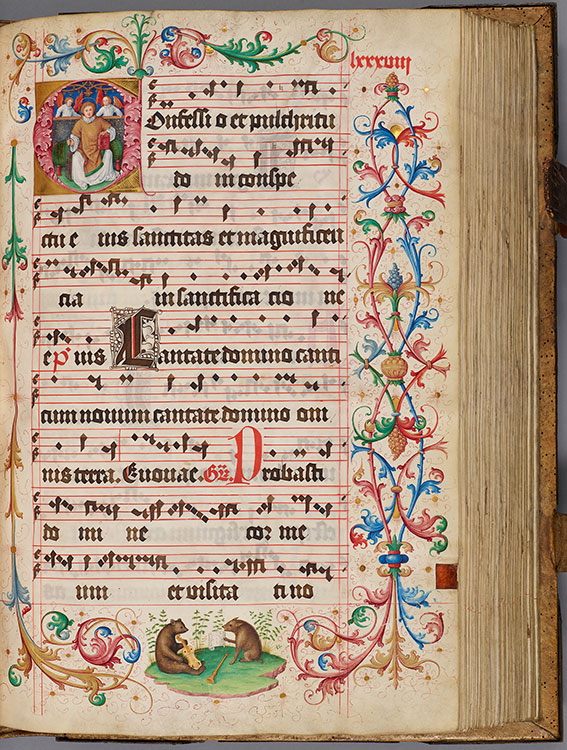 COnfessi o et pulchritu
do in conspe
ctu e ius sanctitas et magnificen
cia in sanctifica cio ne
e ps ius Cantate domino canti
cum nouum cantate domino om
nis terra. Euouae. Gr. Probasti
do mi ne cor me
um et visita ti no